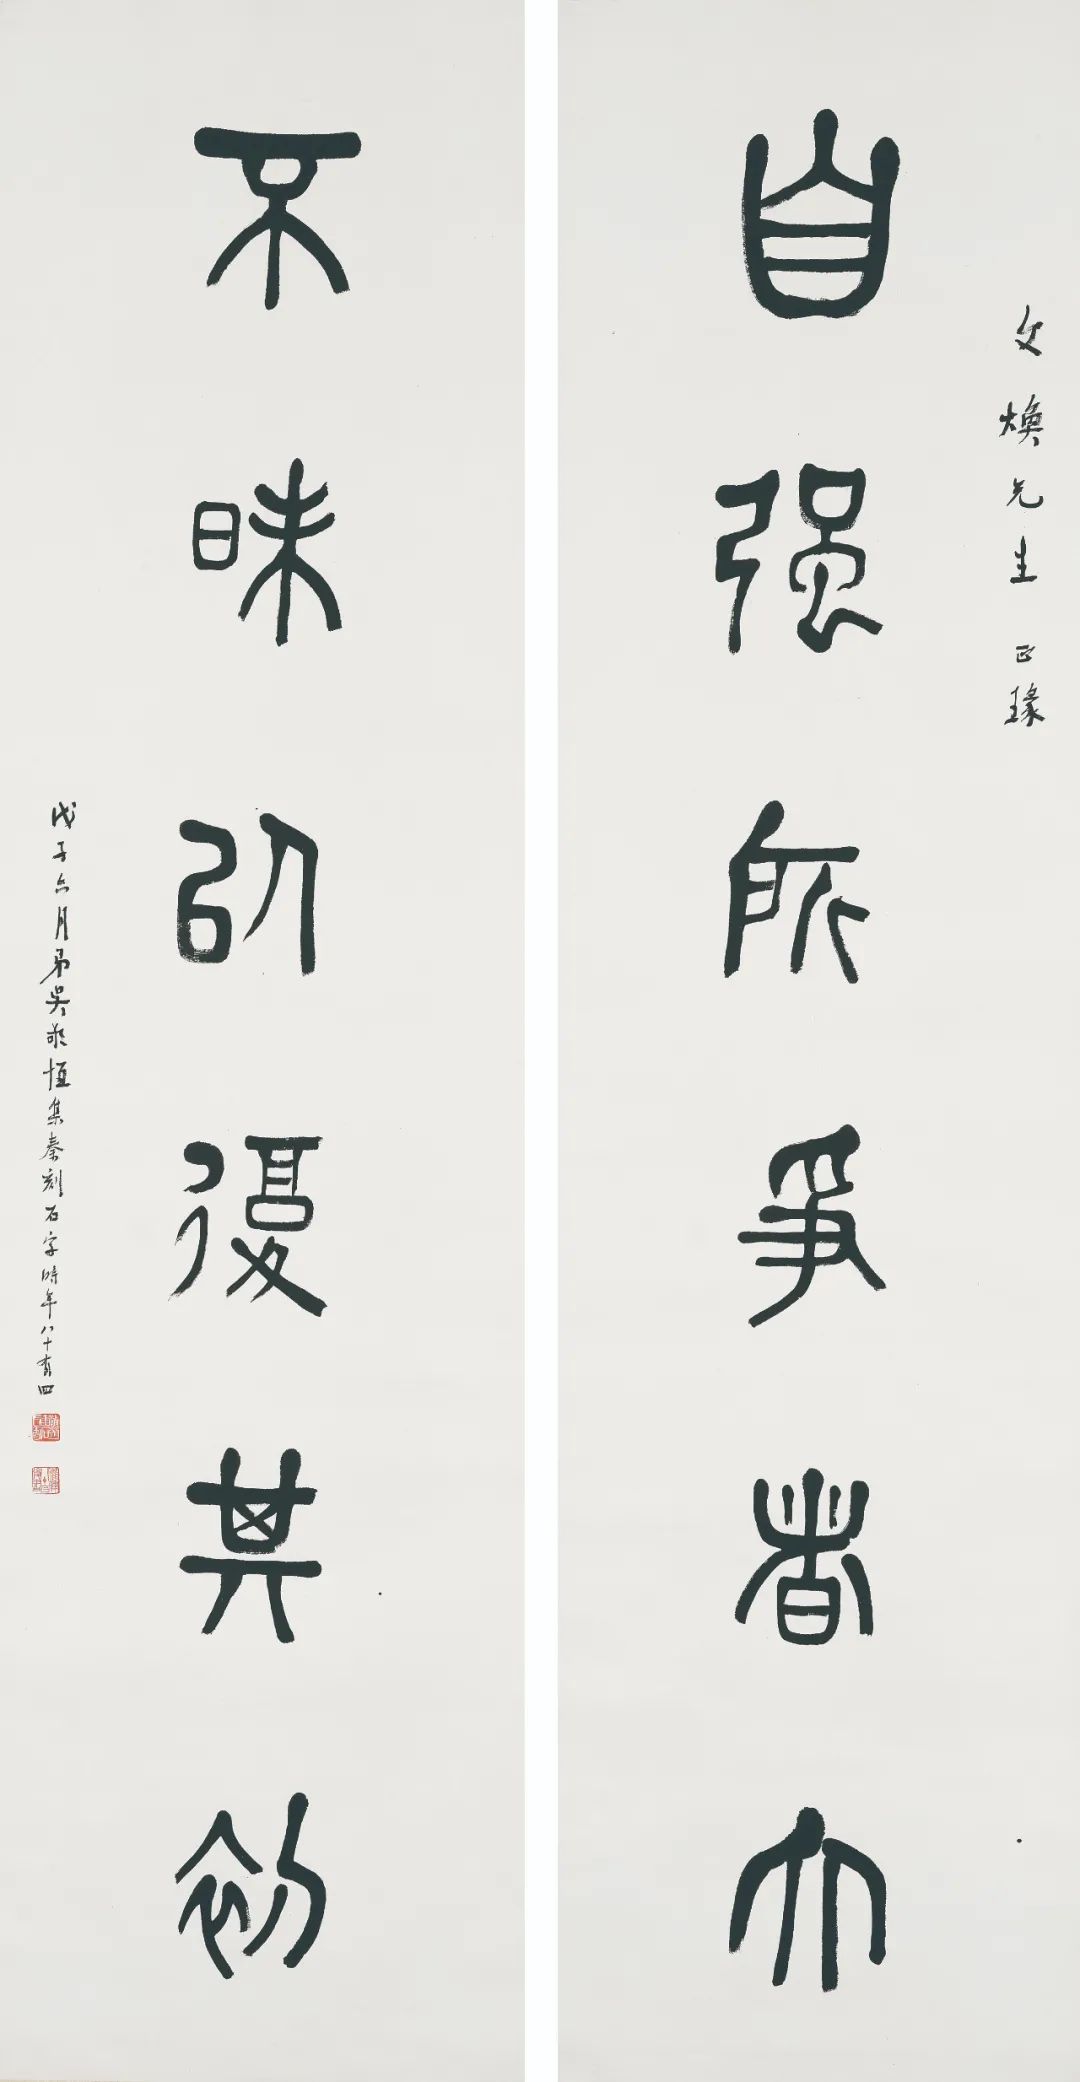 文煥先生正瑑
自强所爭者大
不昧以復其初
戊子六月弟吳敬恆集秦刻石字時年八十有四